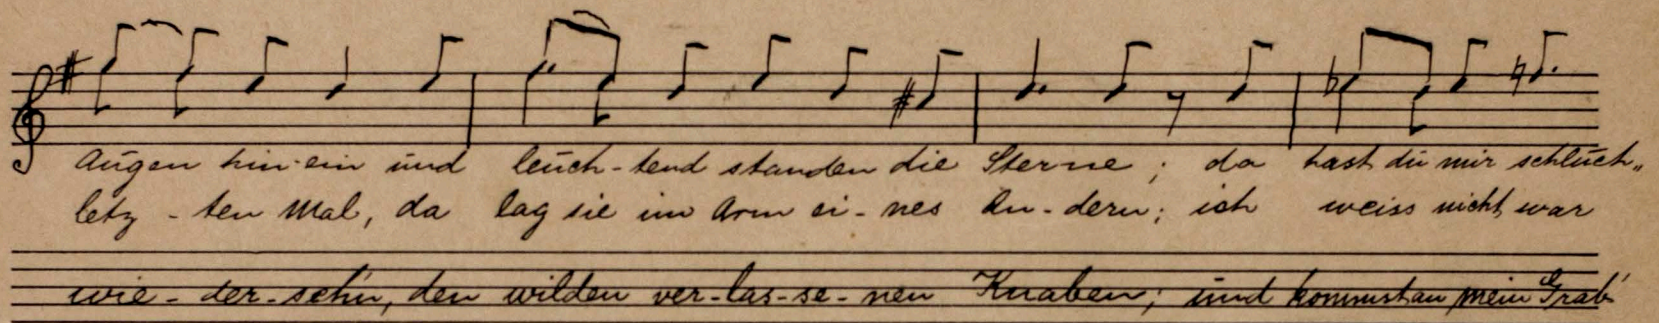 Augen hin-ein und leuch-tend standen die Sterne; da hast du mir schluch„
letz-ten Mal, da lag sie im Arm ei-nes An-dern; ich weiss nicht, war
wie-der-seh'n, den wilden ver-las-se-nen Knaben; und kommst an mein Grab